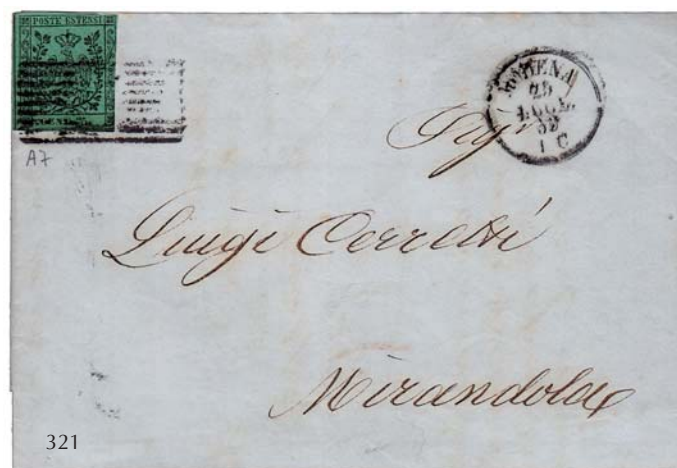 POSTE ESTENSI
MODENA
25
LUGL.
59
1 C
A7
Sigr
Luigi Cerretti
Mirandola
321